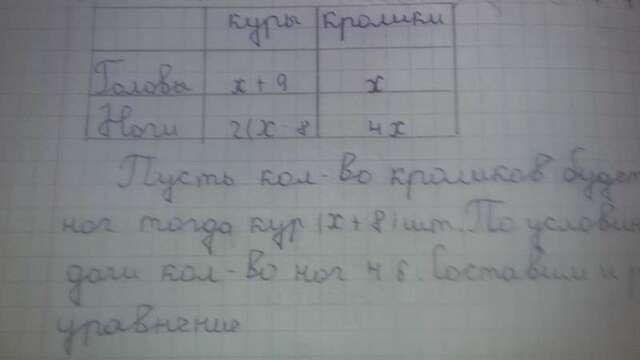 куры кролики
Головы x + 9 x
Ноги 2(x - 8 4x
Пусть кол-во кроликов будет
ног тогда кур (x + 8) шт. По услови
дачи кол-во ног 48. Составим и
уравнение